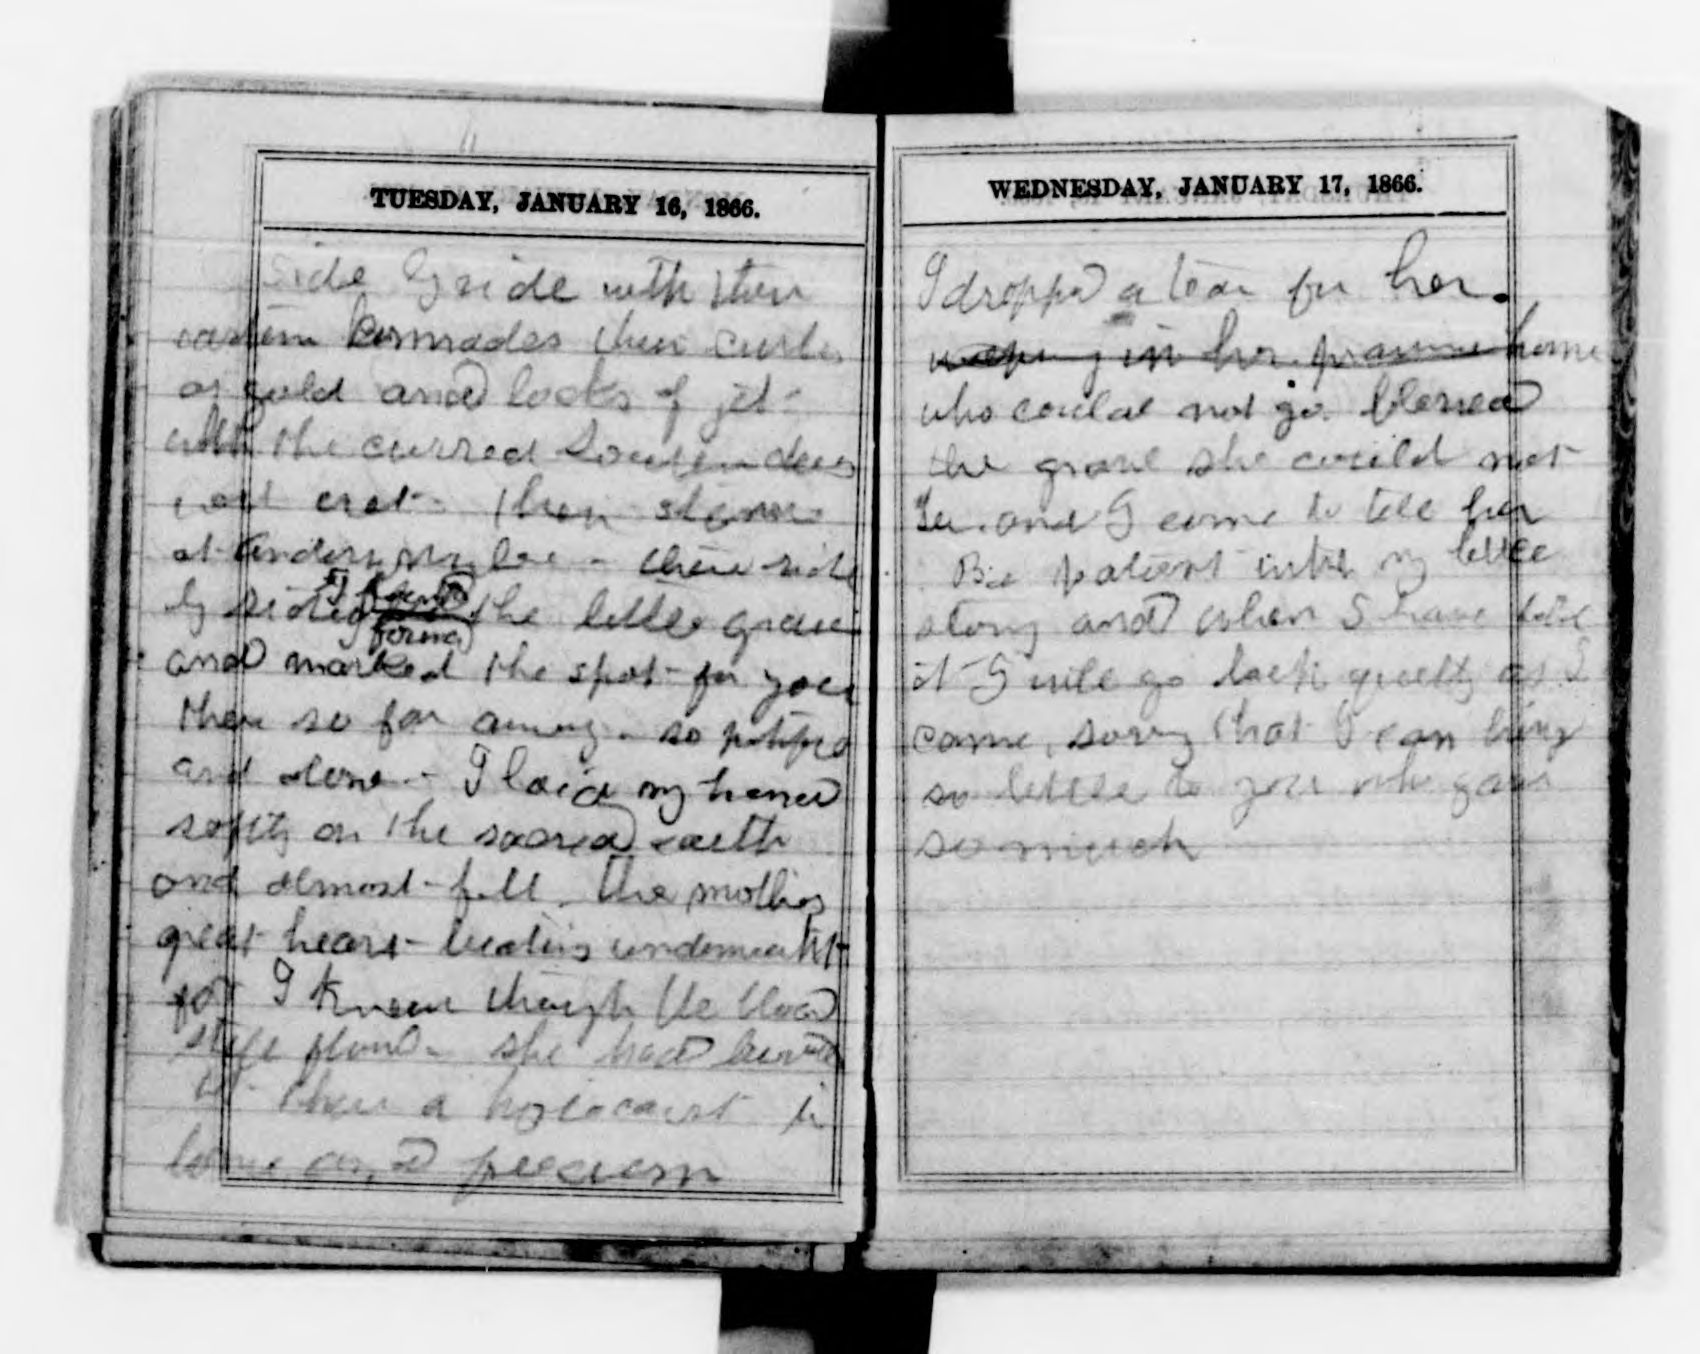 TUESDAY, JANUARY 16, 1866.
side by side with their
eastern Comrades their curls
of gold and locks of jet
with the cursed Southern dews
wet at their stone
at Andersonville - there side
by side I found the little grave
found
and marked the spot for you
there so far away - so pitiful
and alone - I laid my hand
softly on the sacred earth
and almost felt the mothers
great heart beating underneath it
for I knew though the blood
still flowed - she had buried
there a holocaust to
home and freedom
WEDNESDAY, JANUARY 17, 1866.
I dropped a tear for her.
weeping in her prairie home
who could not go. blessed
the grave she could not
See. and I come to tell her
Be patient with my little
story and when I have told
it I will go back quietly as I
came, sorry that I can bring
so little to you who gave
so much